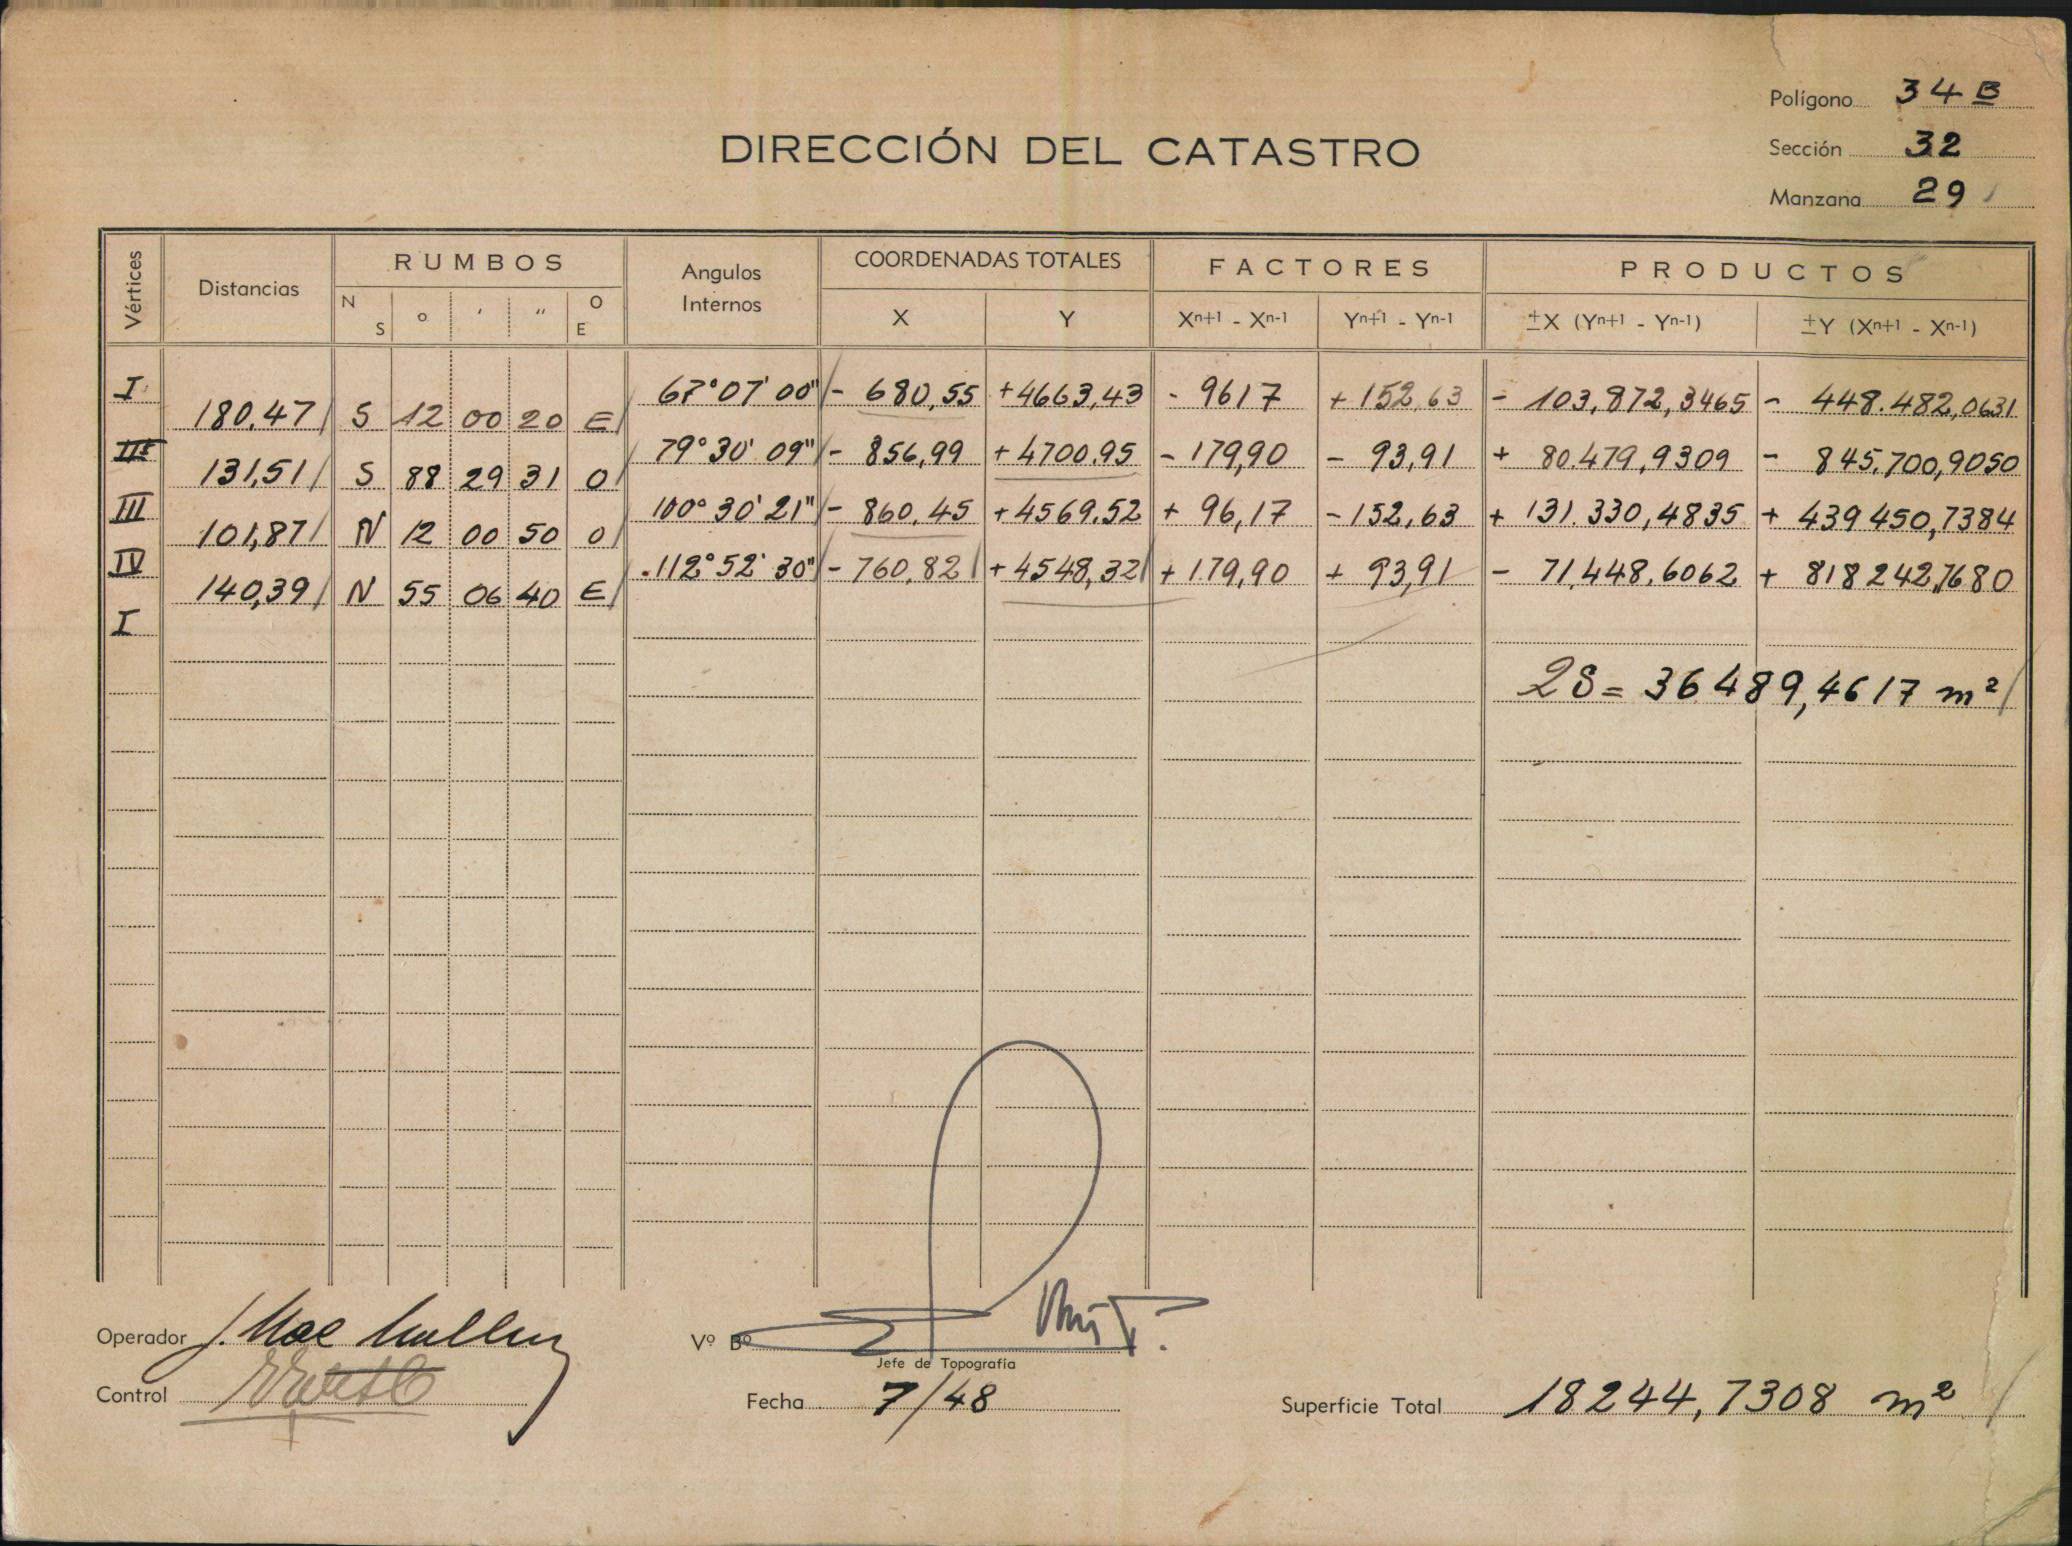 Polígono 34 B
DIRECCIÓN DEL CATASTRO
Sección 32
Manzana 29
Vértices
Distancias
RUMBOS
N S ° ' " O E
Angulos Internos
COORDENADAS TOTALES
X Y
FACTORES
Xn+1 - Xn-1 Yn+1 - Yn-1
PRODUCTOS
±X (Yn+1 - Yn-1) ±Y (Xn+1 - Xn-1)
I 67°07'00" - 680,55 +4663,43 - 9617 + 152,63 - 103,872,3465 - 448.482,0631
180,47 S 12 00 20 E
79°30'09" - 856,99 +4700.95 - 179,90 - 93,91 + 80.479,9309 - 845.700,9050
131,51 S 88 29 31 O
III 100°30'21" - 860.45 +4569.52 + 96,17 - 152,63 + 131.330,4835 + 439450,7384
101,87 N 12 00 50 O
IV 112°52'30" - 760.82 +4548,32 + 179,90 + 93,91 - 71,448,6062 + 818242,7680
140,39 N 55 06 40 E
I
2S = 36489,4617 m²
Operador J. Mac Mullen
Vº Bº
Jefe de Topografía
Control
Fecha 7/48
Superficie Total 18244,7308 m²